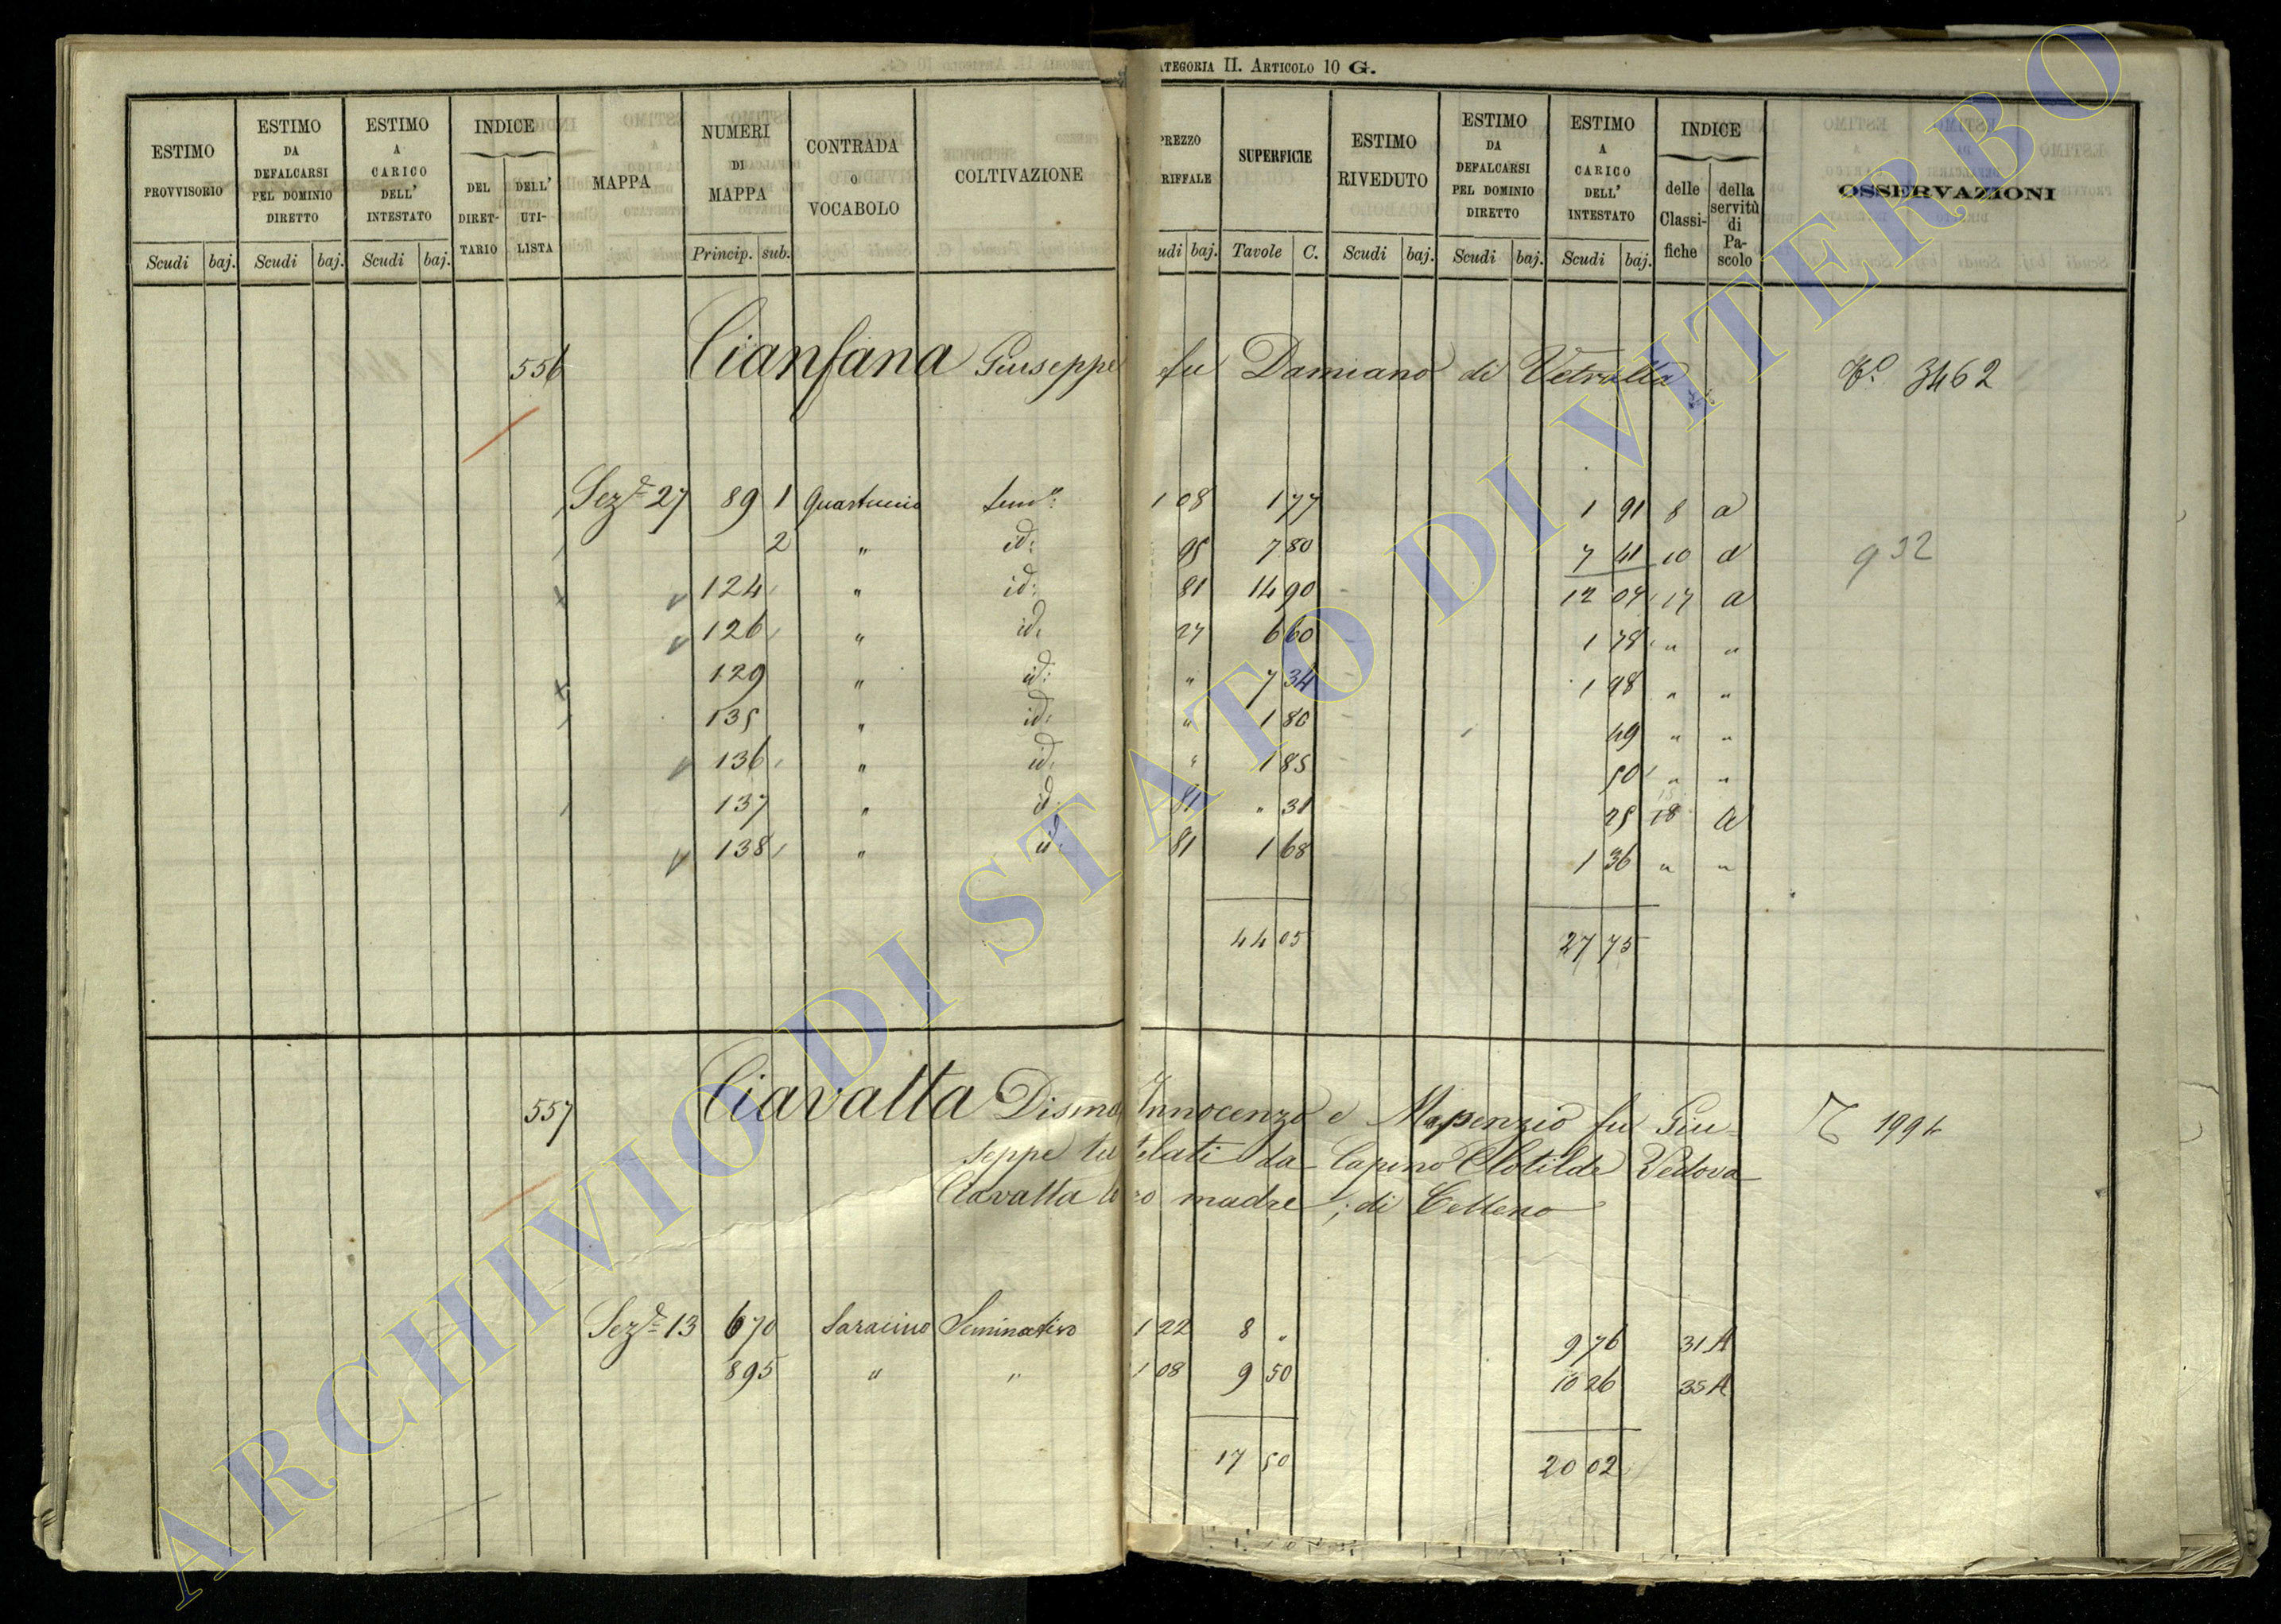 ATEGORIA II. ARTICOLO 10 G.
ESTIMO PROVVISORIO Scudi baj.
ESTIMO DA DEFALCARSI PEL DOMINIO DIRETTO Scudi baj.
ESTIMO A CARICO DELL' INTESTATO Scudi baj.
INDICE DEL DIRET-TARIO DELL' UTI-LISTA
MAPPA
NUMERI DI MAPPA Princip. sub.
CONTRADA O VOCABOLO
COLTIVAZIONE
PREZZO RIFFALE udi baj.
SUPERFICIE Tavole C.
ESTIMO RIVEDUTO Scudi baj.
ESTIMO DA DEFALCARSI PEL DOMINIO DIRETTO Scudi baj.
ESTIMO A CARICO DELL' INTESTATO Scudi baj.
INDICE delle Classi-fiche della servitù di Pa-scolo
OSSERVAZIONI
556 Cianfana Giuseppe fu Damiano di Vetralla 3462
Sez.e 27 89 1 Quartuccio Sem.o: 1 08 1 77 1 91 8 a
2 " id: 95 7 80 7 41 10 a 932
124 " id: 81 14 90 12 07 17 a
126 " id: 27 6 60 1 78 " "
129 " id: " 7 34 1 98 " "
135 " id: " 1 80 49 " "
136 " id: " 1 85 50 " "
137 " id: 81 " 31 25 18 a
138 " id: 81 1 68 1 36 " "
44 05 27 75
557 Ciavatta Disma Innocenzo e Mapenzio fu Giu-
seppe tutelati da Capino Clotilde Vedova
Ciavatta loro madre; di Celleno
1994
Sez.e 13 670 Saracino Seminativo 1 22 8 " 9 76 31 A
895 " " 1 08 9 50 10 26 35 A
17 50 20 02
ARCHIVIO DI STATO DI VITERBO